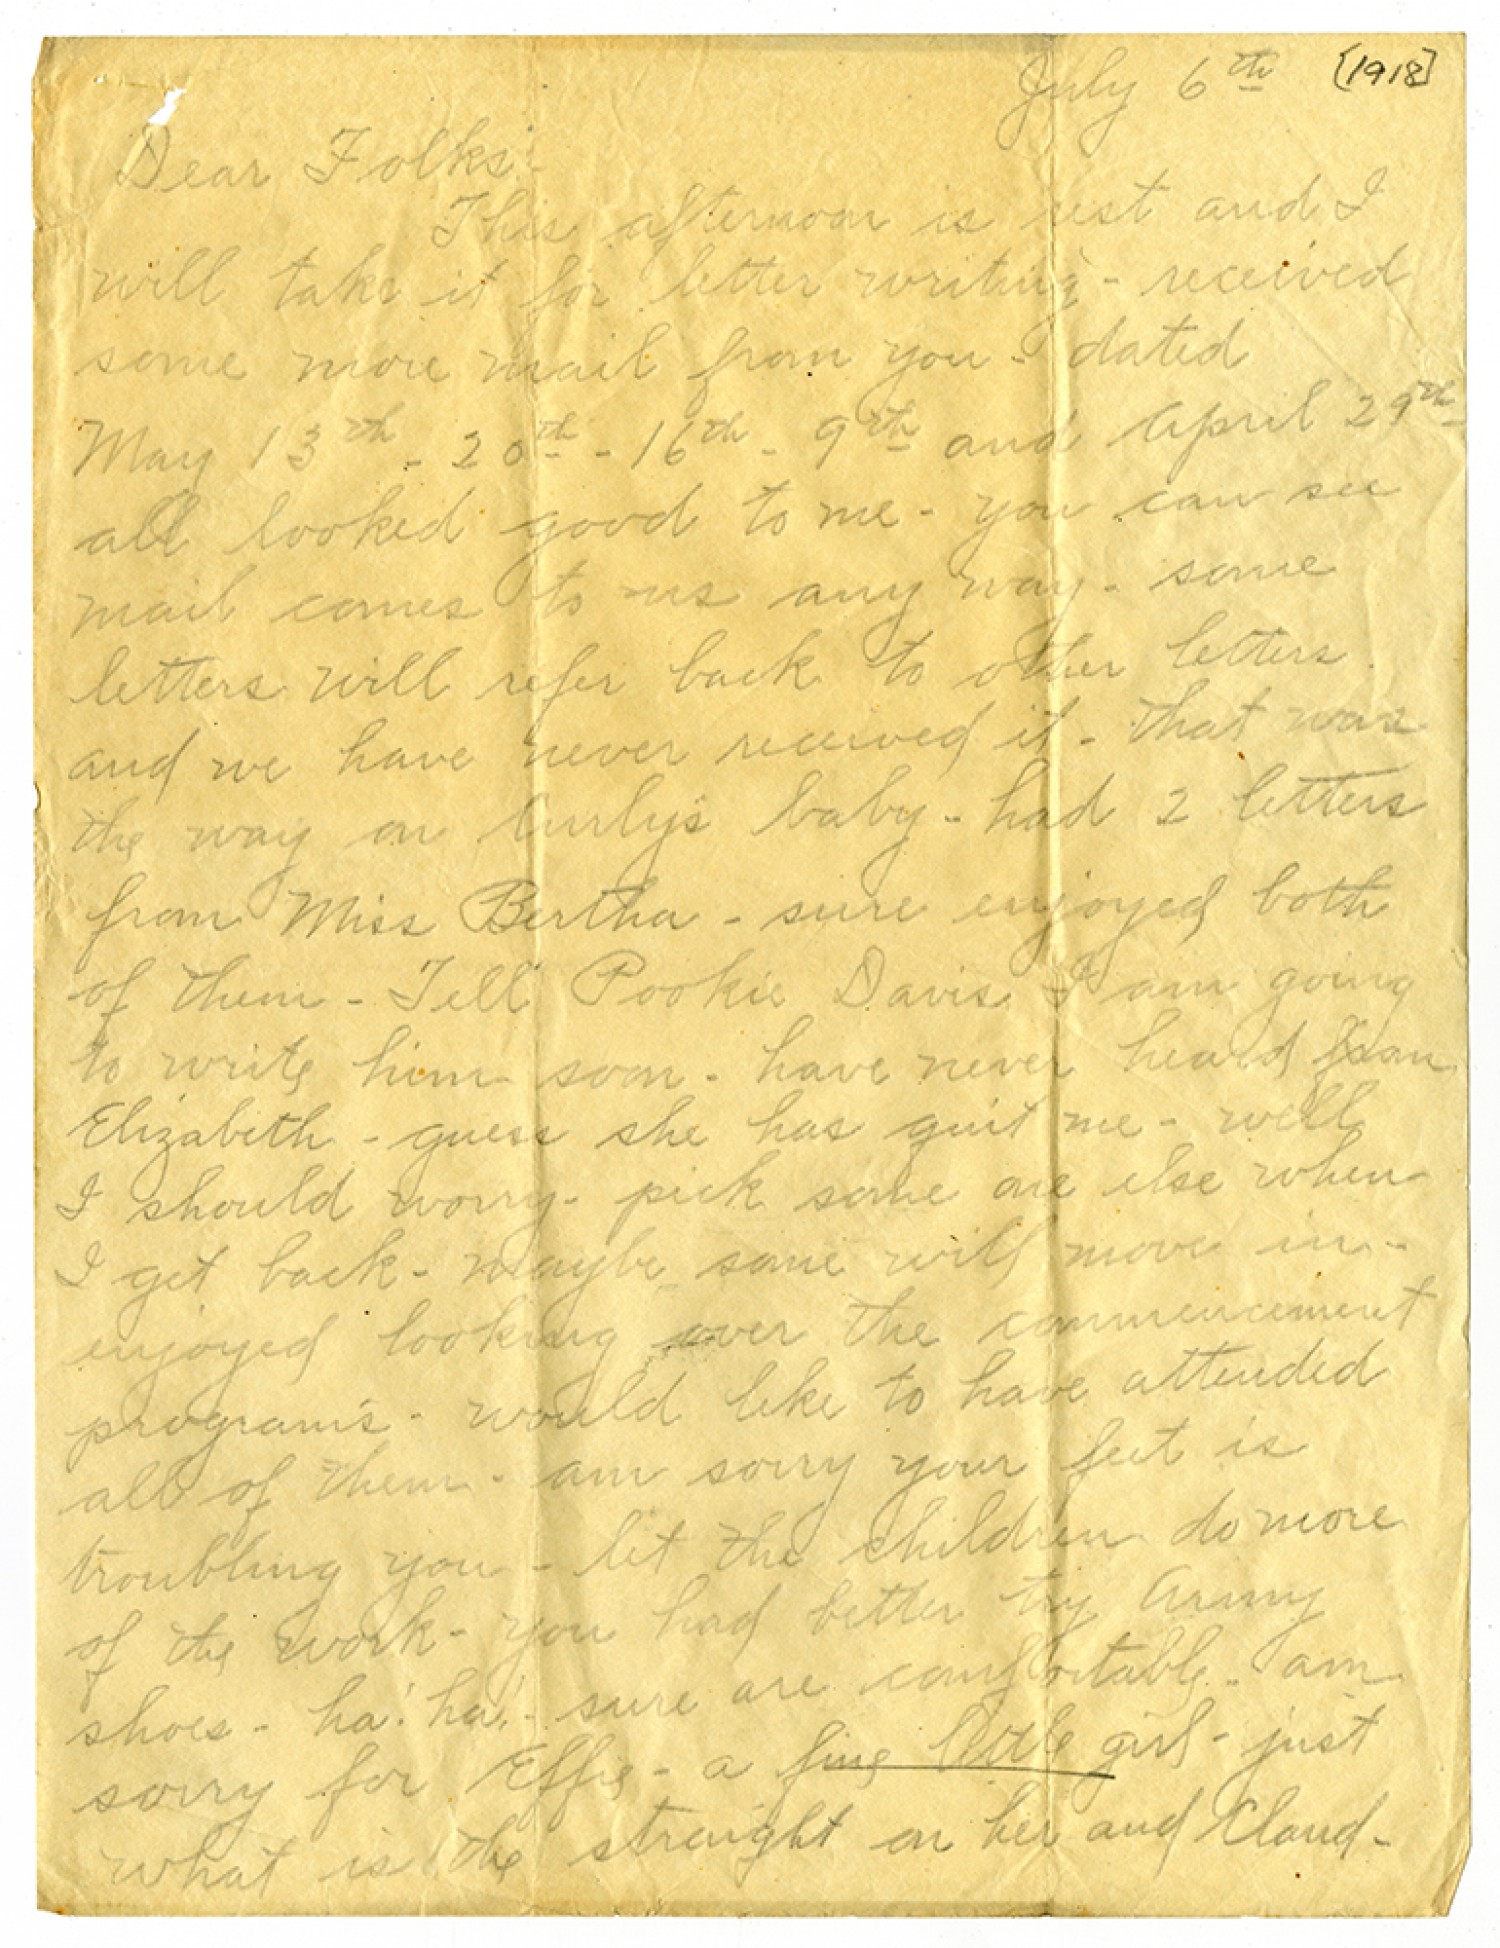 July 6th [1918]
Dear Folks:-
This afternoon is rest and I
will take it for letter writing - received
some more mail from you - dated
May 13th - 20th - 16th - 9th and April 29th
all looked good to me - you can see
mail comes to us any way - some
letters will refer back to other letters
and we have never received it - that was
the way on Curly's baby - had 2 letters
from Miss Bertha - sure enjoyed both
of them - Tell Pookie Davis I am going
to write him soon - have never heard from
Elizabeth - guess she has quit me - well
I should worry - pick some one else when
I get back - maybe some will move in -
enjoyed looking over the commencement
programs - would like to have attended
all of them - am sorry your feet is
troubling you - let the children do more
of the work - you had better try Army
shoes - ha! ha! - sure are comfortable - am
sorry for Effie - a fine little girl - just
what is the straight on her and Claud -